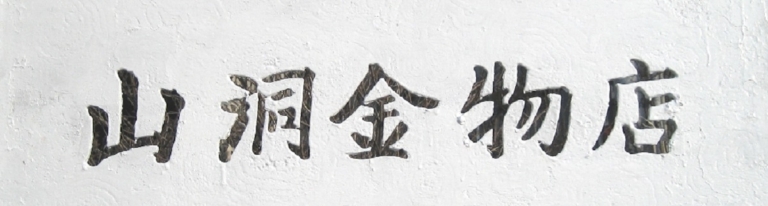 山洞金物店